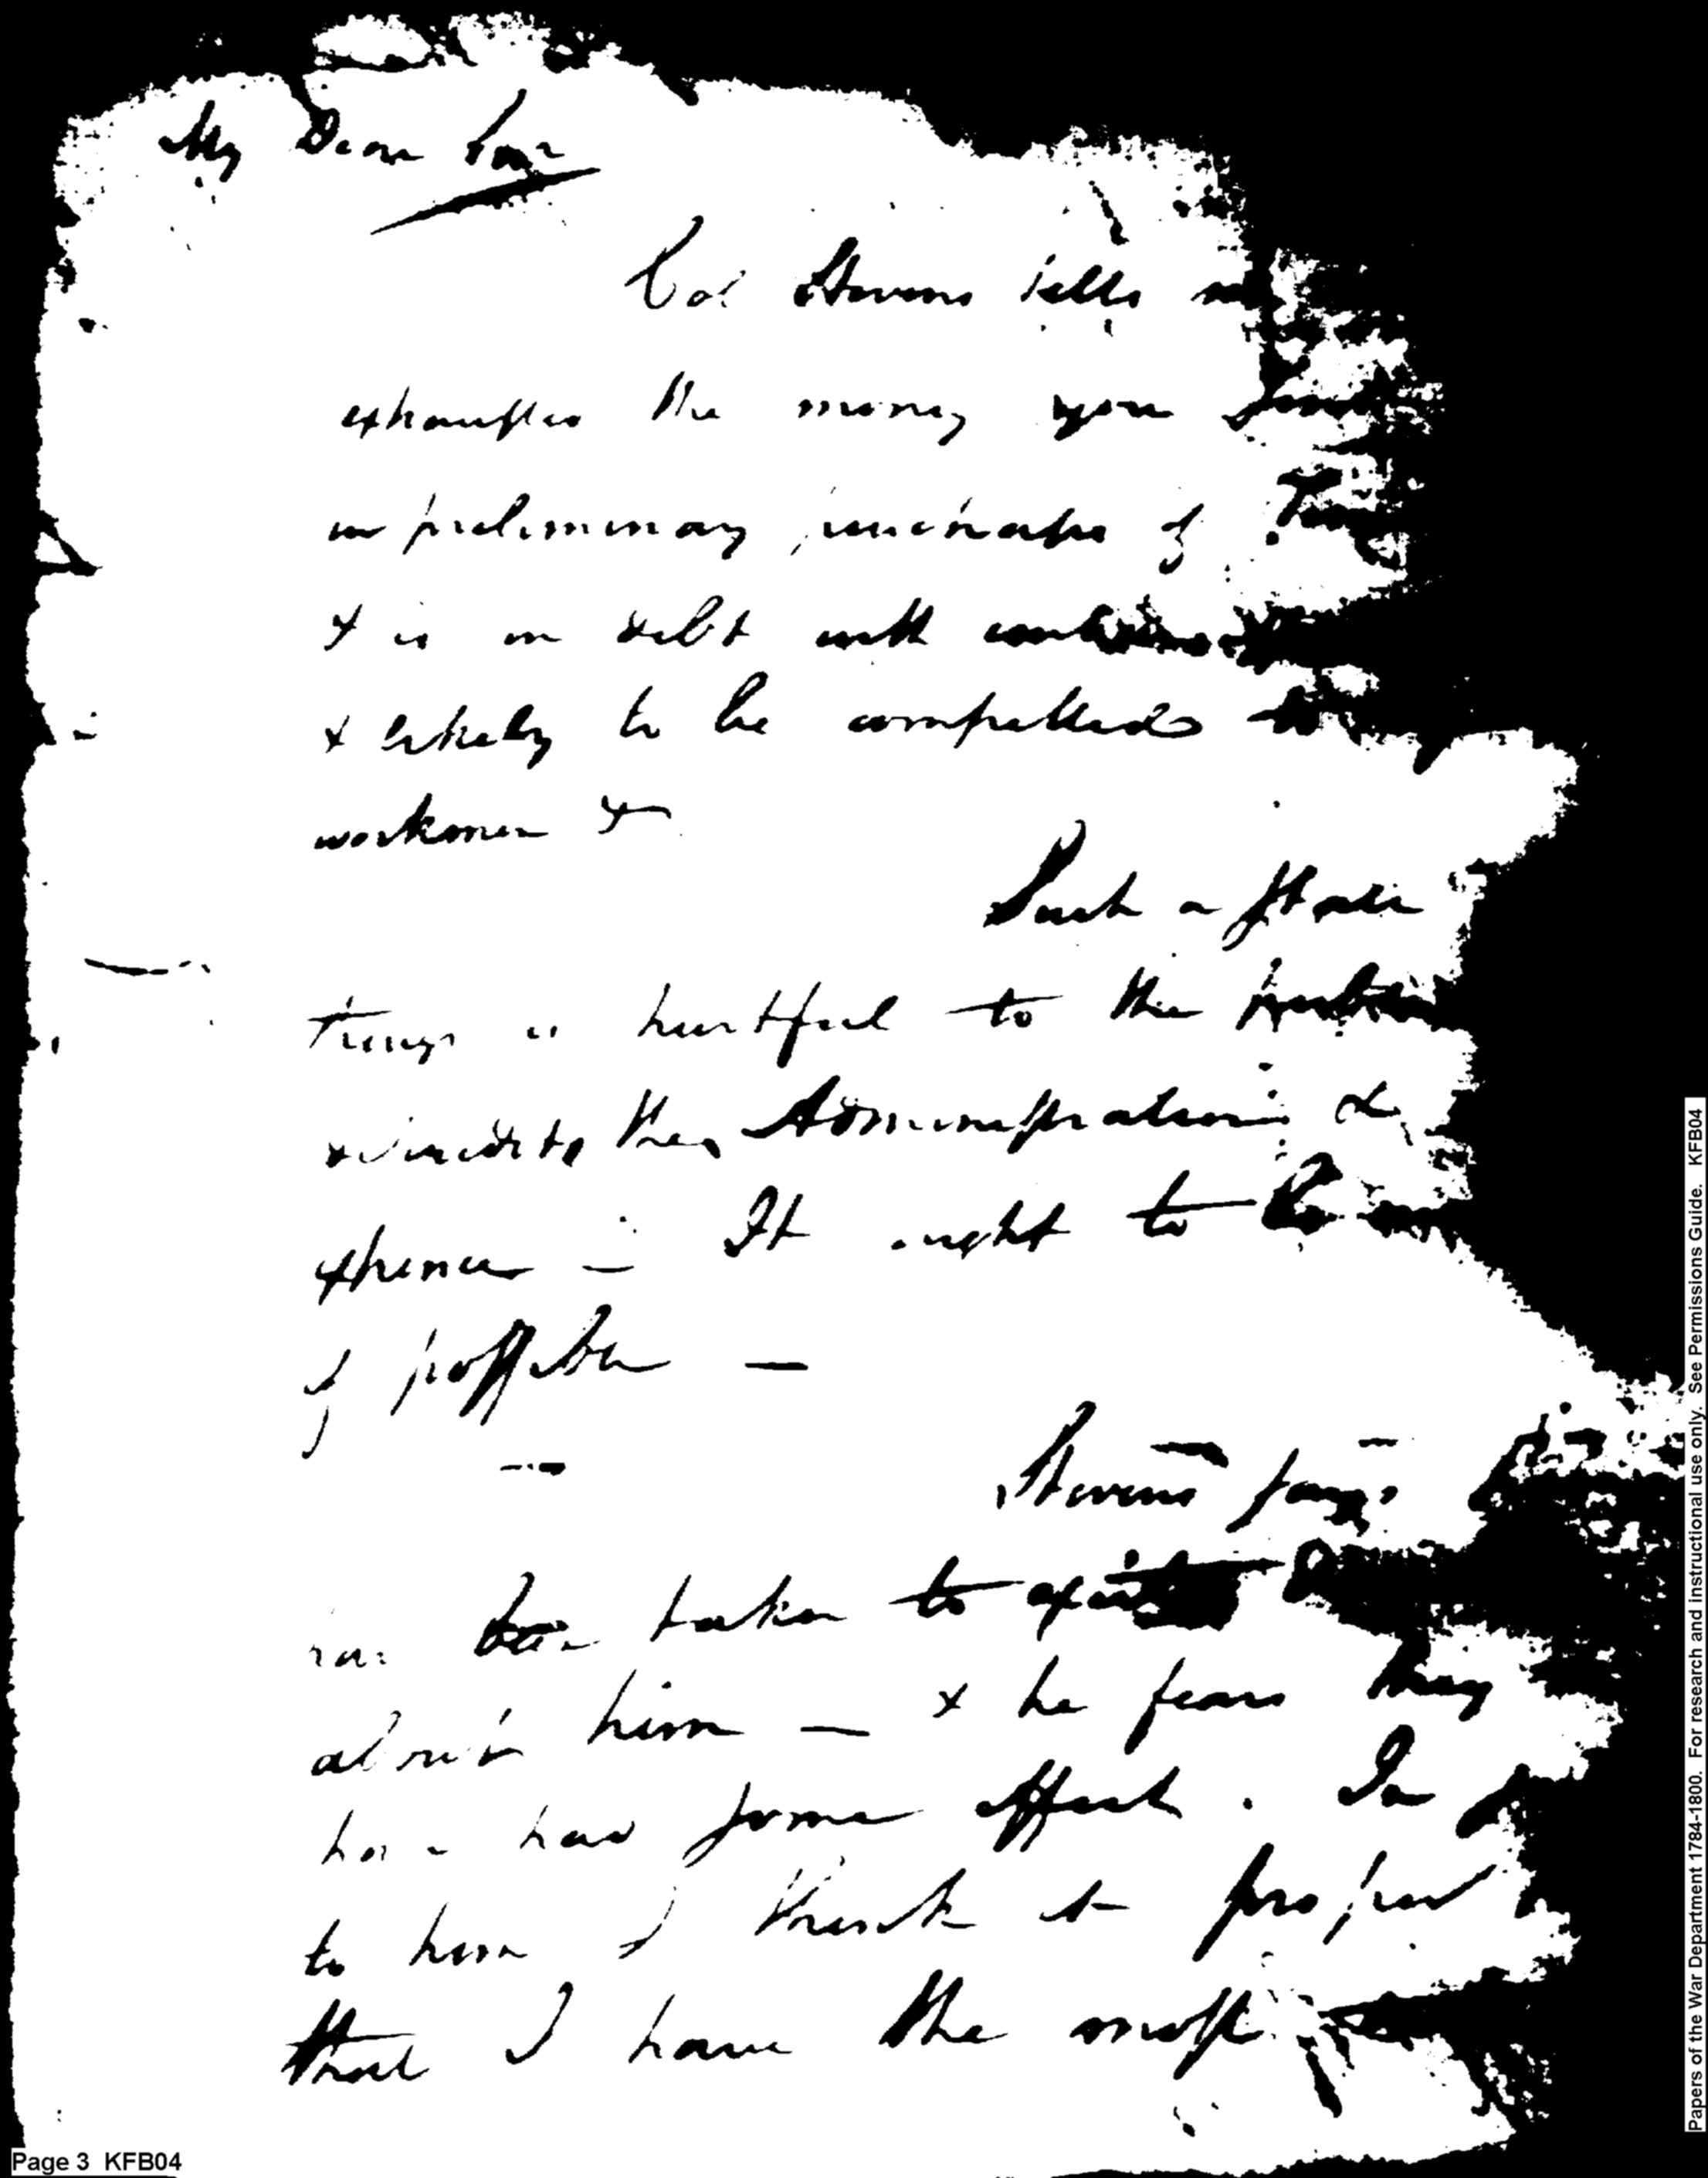 My Dear Sir
Col Stevens tells
exhausted the money you
in preliminary purchases of
& is in debt with
& likely to be compelled to
workmen &
Such a state
things is hurtful to the
& discredits the Administration &
expence — It ought to be
if possible —
Stevens says
been taken to
about him — & he fears they
have had some effect. In
to him I think it proper
that I have the most
Page 3 KFB04
Papers of the War Department 1784-1800. For research and instructional use only. See Permissions Guide. KFB04